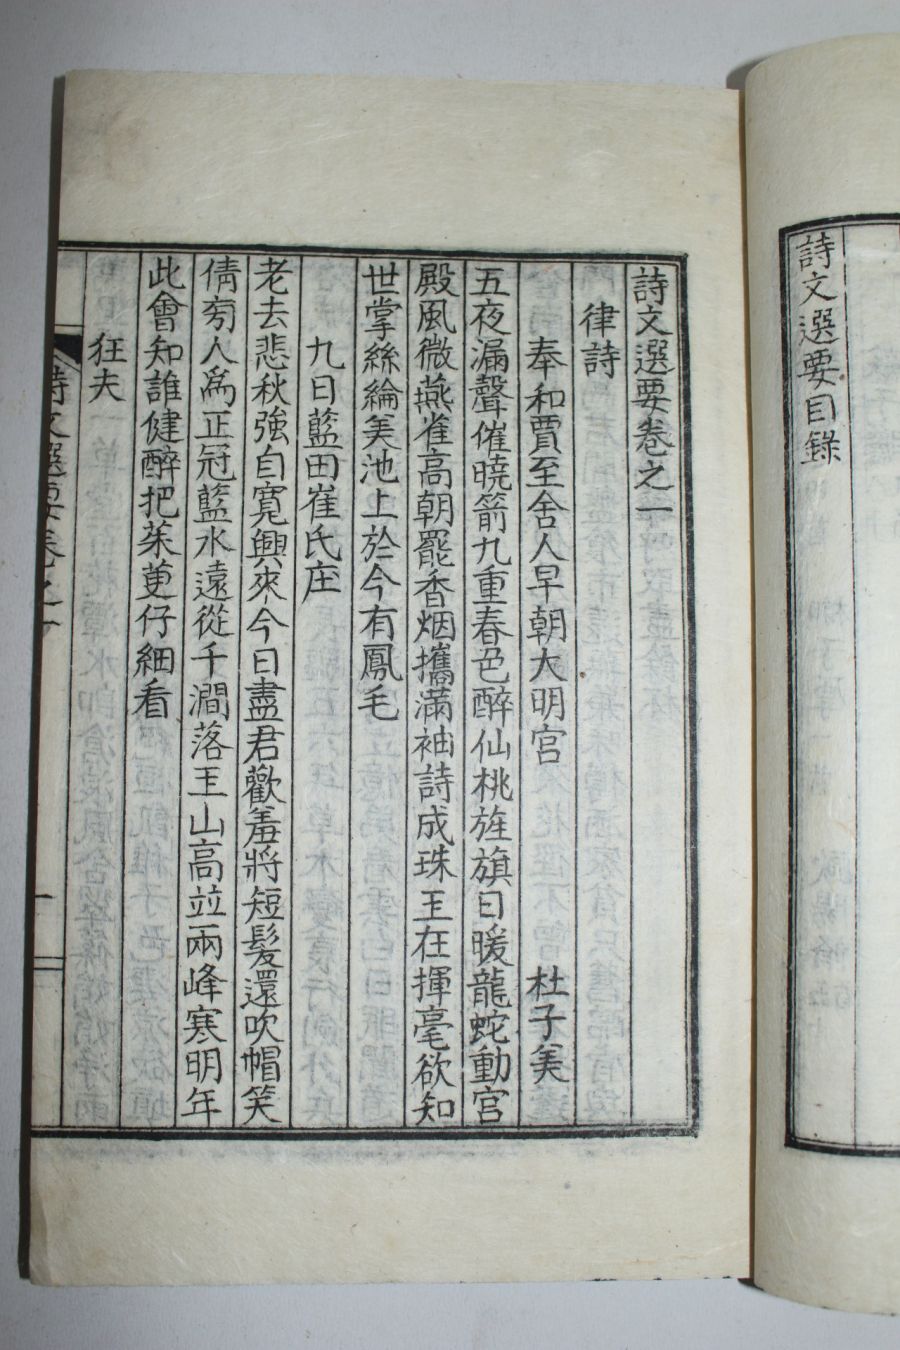 詩文選要目錄
詩文選要卷之一
律詩
奉和賈至舍人早朝大明宮 杜子美
五夜漏聲催曉箭九重春色醉仙桃旌旗日暖龍蛇動宮
殿風微燕雀高朝罷香烟攜滿袖詩成珠玉在揮毫欲知
世掌絲綸美池上於今有鳳毛
九日藍田崔氏庄
老去悲秋強自寬興來今日盡君歡羞將短髮還吹帽笑
倩旁人爲正冠藍水遠從千澗落玉山高並兩峰寒明年
此會知誰健醉把茱萸仔細看
狂夫
詩文選要卷之一
一